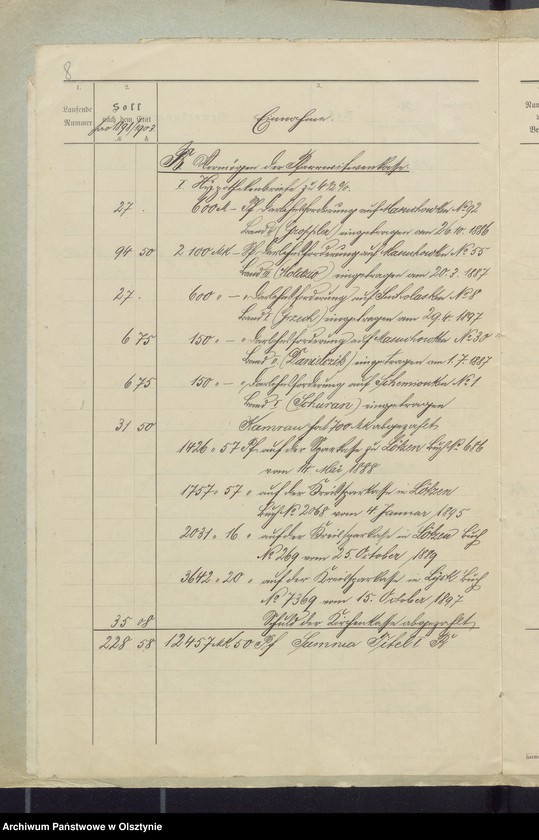 8
1. 2. 3.
Laufende Nummer
Soll
nach dem Etat
pro 1898/1902
Einnahme.
M ₰
B. Vermögen der Pfarrwitwenkasse.
I. Hypothekenbriefe zu 4½ %.
27 . 600 M – Pf Darlehnsforderung auf № 92
Band (Grossler) eingetragen am 26. 1886
94 50 2 100 MK – Pf. Darlehnsforderung auf № 55
Band eingetragen am 20. 3. 1887
27 . 600 " – " Darlehnsforderung auf № 8
Band I eingetragen am 29. 4. 1897
6 75 150 " – " Darlehnsforderung auf № 30
Band (Danielczik) eingetragen am 1. 7. 1887
6 75 150 " – " Darlehnsforderung auf Schemionken № 1
Band I (Schuran) eingetragen
31 50 hat 700 MK abgezahlt
1426 " 57 Pf. auf der Sparkasse zu Lötzen Buch № 686
vom Mai 1888
1757 " 57 " auf der Kreissparkasse in Lötzen
Buch № 2068 vom 4. Januar 1895
2031 " 16 " auf der Kreissparkasse in Lötzen Buch
№ 269 vom 25. October 1889
3642 " 20 " auf der Kreissparkasse in Lyck Buch
№ 7369 vom 15. October 1897
35 08 Schuld der Kirchenkasse abgezahlt
228 58 12457 MK 50 Pf Summa Titel I B
Archiwum Państwowe w Olsztynie